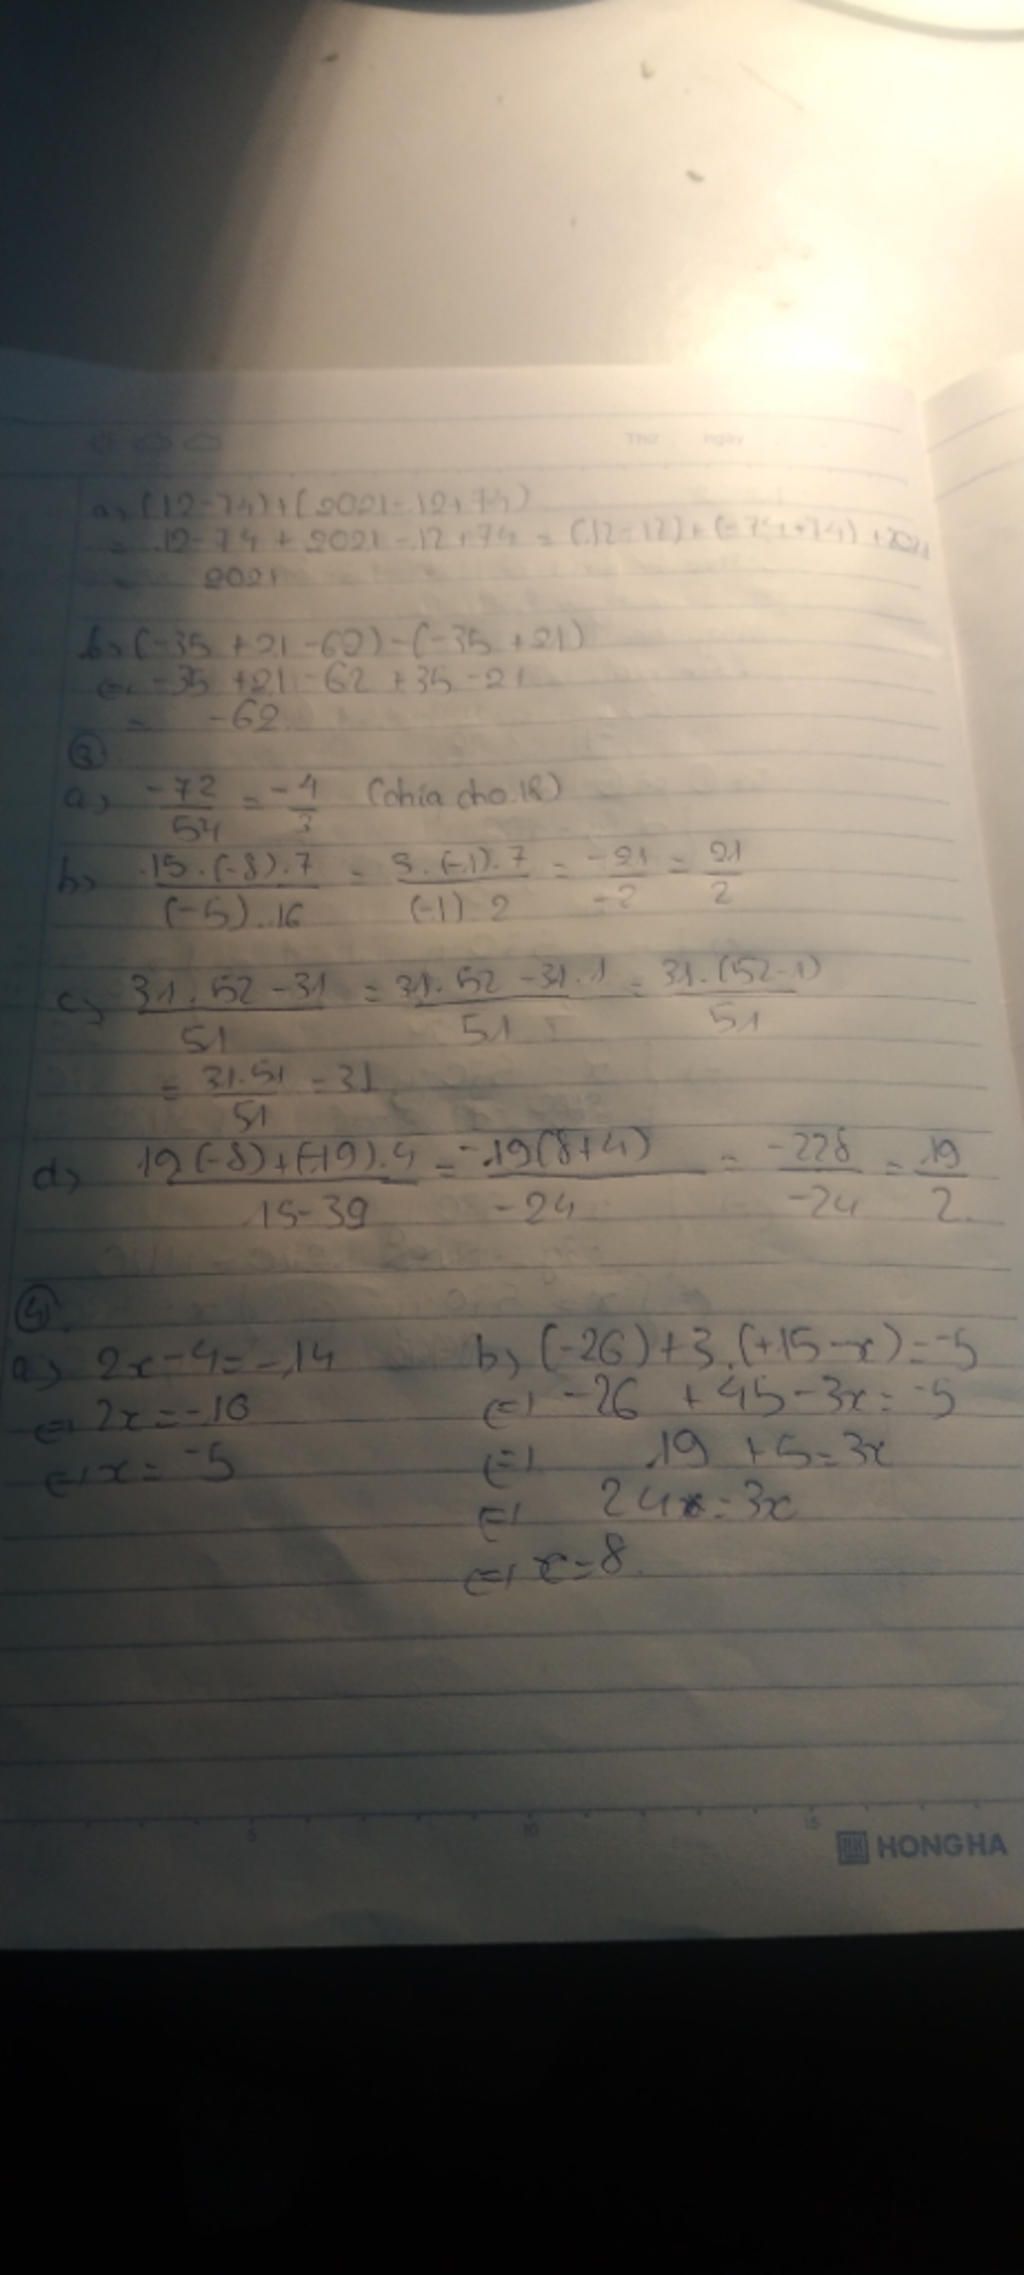 Thứ ngày
a, (12-74)+(2021-12+74)
= 12-74+2021-12+74 = (12-12)+(-74+74)+2021
= 2021
b, (-35+21-62)-(-35+21)
(=) -35+21-62+35-21
= -62
③
a, -72/54 = -4/3 (chia cho 18)
b, 15.(-8).7/(-5).16 = 3.(-1).7/(-1).2 = -21/-2 = 21/2
c, 31.52-31/51 = 31.52-31.1/51 = 31.(52-1)/51
= 31.51/51 = 31
d, 19(-8)+(-19).4/15-39 = -19(8+4)/-24 = -228/-24 = 19/2
④
a, 2x-4=-14 b, (-26)+3.(+15-x)=-5
(=) 2x=-10 (=) -26+45-3x=-5
(=) x=-5 (=) 19+5=3x
(=) 24=3x
(=) x=8.
5 10 15
HONG HA